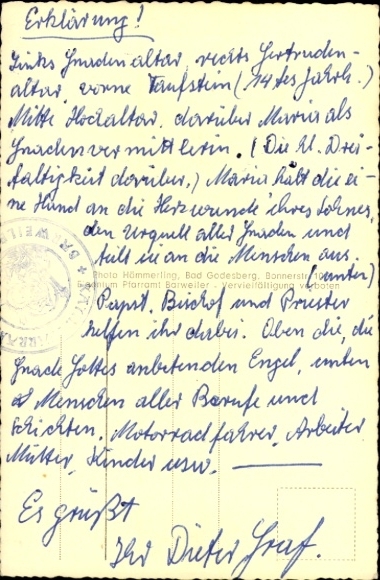 Erklärung!
Links Gnadenaltar, rechts Gertruden-
altar, vorne Taufstein (14tes Jahrh.)
Mitte Hochaltar, darüber Maria als
Gnadenvermittlerin. (Die hl. Drei-
faltigkeit darüber.) Maria hält die ei-
ne Hand an die Herzwunde ihres Sohnes,
den Urquell aller Gnaden und
teilt sie an die Menschen aus.
Photo Hämmerling, Bad Godesberg, Bonnerstr.
(unter)
Pfarramt Barweiler - Vervielfältigung verboten
Papst, Bischof und Priester
helfen ihr dabei. Oben die, die
Gnade Gottes anbetenden Engel, unten
Menschen aller Berufe und
Schichten. Motorradfahrer, Arbeiter
Mütter, Kinder usw.
Es grüßt
Ihr Dieter Graf.